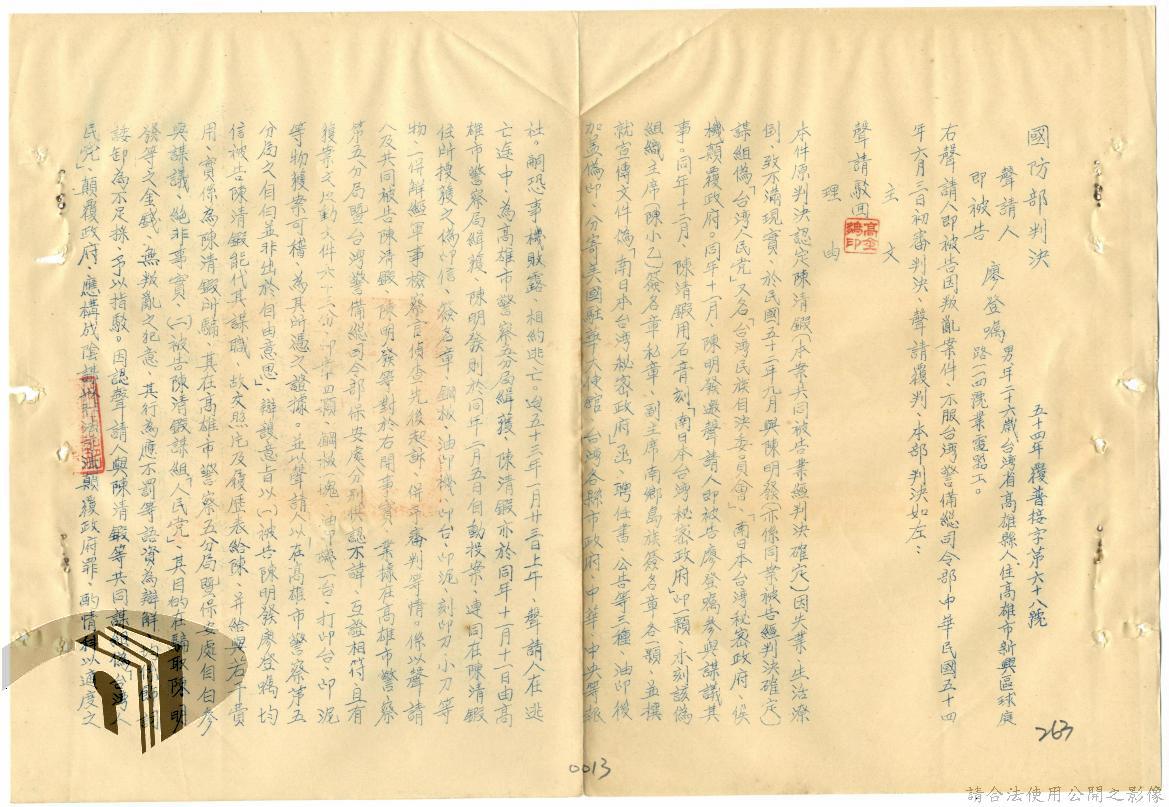 國防部判決
五十四年覆普接字第六十八號
聲請人
即被告 廖登囑 男年二十六歲台湾省高雄縣人住高雄市新興區球庭
路一四號業電器工。
右聲請人即被告因叛亂案件、不服台湾警備總司令部中華民國五十四
年六月三日初審判決、聲請覆判、本部判決如左：
主文
聲請駁回
理由
本件原判決認定陳清鍛（本案共同被告業經判決確定）因失業、生活潦
倒、致不滿現實、於民國五十二年九月與陳明發（亦係同案被告經判決確定）
謀組偽「台湾人民党」又名「台湾民族自決委員會」、「南日本台湾秘密政府」、俟
機顛覆政府。同年十一月、陳明發邀聲請人即被告廖登囑參與謀議其
事。同年十二月、陳清鍛用石膏刻「南日本台湾秘密政府」印一顆、木刻該偽
組織主席（陳小乙）簽名章私章、副主席南鄉島族簽名章各一顆、並撰
就宣傳文件偽「南日本台湾秘密政府」函、聘任書、公告等三種、油印後
加蓋偽印、分寄美國駐華大使館、台湾各縣市政府、中華、中央等報
社。嗣恐事機敗露、相約逃亡。迨五十三年一月廿三日上午、聲請人在逃
亡途中、為高雄市警察五分局緝獲、陳清鍛亦於同年十一月十一日由高
雄市警察局緝獲、陳明發則於同年二月五日自動投案、連同在陳清鍛
住所搜獲之偽印信、簽名章、鋼板、油印機、印台、印泥、刻印刀、小刀等
物、一併解經軍事檢察官偵查先後起訴、併予審判等情。係以聲請
人及共同被告陳清鍛、陳明發等對於右開事實、業據在高雄市警察
第五分局暨台湾警備總司令部保安處分別供認不諱、互證相符且有
獲案之以動文件六十三份、印章四顆、鋼板塊、油印機一台、打印台、印泥
等物獲案可稽、為其所憑之證據。並以聲請人以在高雄市警察第五
分局之自白並非出於自由意思、辯護意旨以(一)被告陳明發廖登囑均
信被告陳清鍛能代其謀職、故交照片及履歷表給陳、并給與若干費
用、實係為陳清鍛所騙、其在高雄市警察五分局暨保安處自白參
與謀議、絕非事實、(二)被告陳清鍛謀組「人民党」、其目的在騙取陳明
發等之金錢、無叛亂之犯意、其行為應不罰等語資為辯解、飾詞
諉卸為不足採、予以指駁。因認聲請人與陳清鍛等共同謀組偽「台湾人
民党」、顛覆政府、應構成陰謀以非法之方法顛覆政府罪、酌情科以適度之
263
0013
請合法使用公開之影像